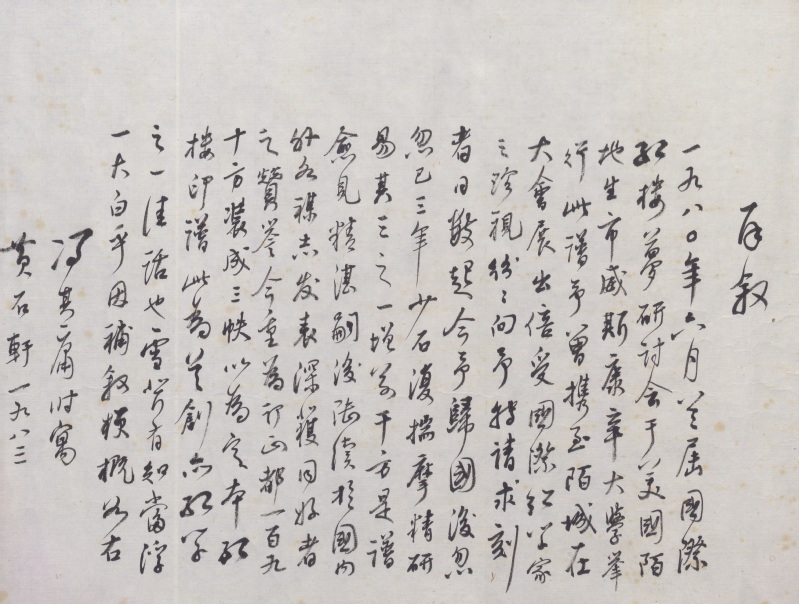 后叙
一九八〇年六月首届国際
红楼夢研讨会于美國陌
地生市威斯康辛大學举
行此谱予曾携至陌城在
大會展出倍受國際红学家
之珍視纷纷向予转請求刻
者日数起今予歸國後忽
忽已三年少石復揣摩精研
易其三之一增若干方是谱
愈見精湛嗣後陆续於國内
外各雜志发表深獲同好者
之贊誉今重为訂正都一百九
十方装成三帙以为定本红
楼印谱此为首創亦红学
之一佳話也雪芹有知當浮
一大白乎因補叙梗概如右
冯其庸时寓
黄石軒一九八三